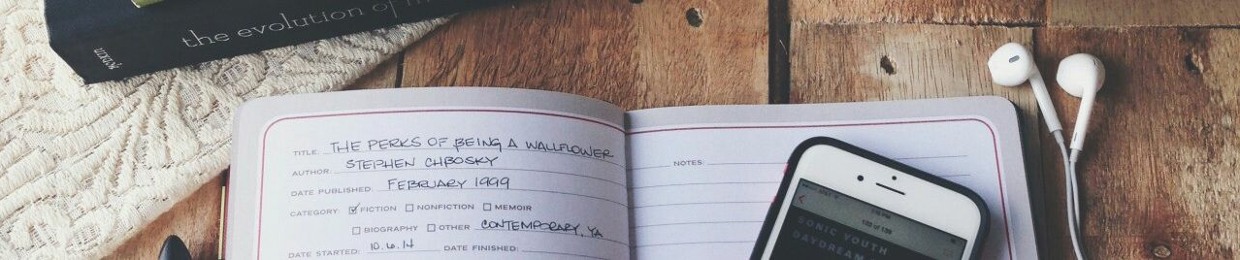 the evolution of
TITLE: THE PERKS OF BEING A WALLFLOWER
AUTHOR: STEPHEN CHBOSKY
DATE PUBLISHED: FEBRUARY 1999
CATEGORY: FICTION NONFICTION MEMOIR
BIOGRAPHY OTHER CONTEMPORARY, YA
DATE STARTED: 10.6.14 DATE FINISHED:
NOTES:
SONIC YOUTH
DAYDREAM